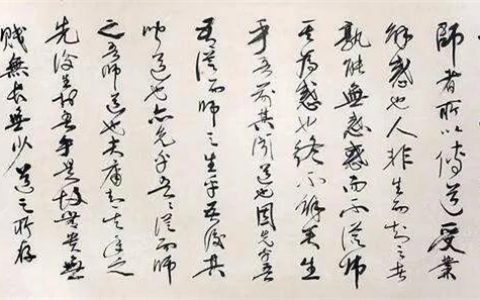 師者所以傳道受業
解惑也人非生而知之者
孰能無惑惑而不從師
其為惑也終不解矣生
乎吾前其聞道也固先乎吾
吾從而師之生乎吾後其
聞道也亦先乎吾吾從而師
之吾師道也夫庸知其年之
先後生於吾乎是故無貴無
賤無長無少道之所存